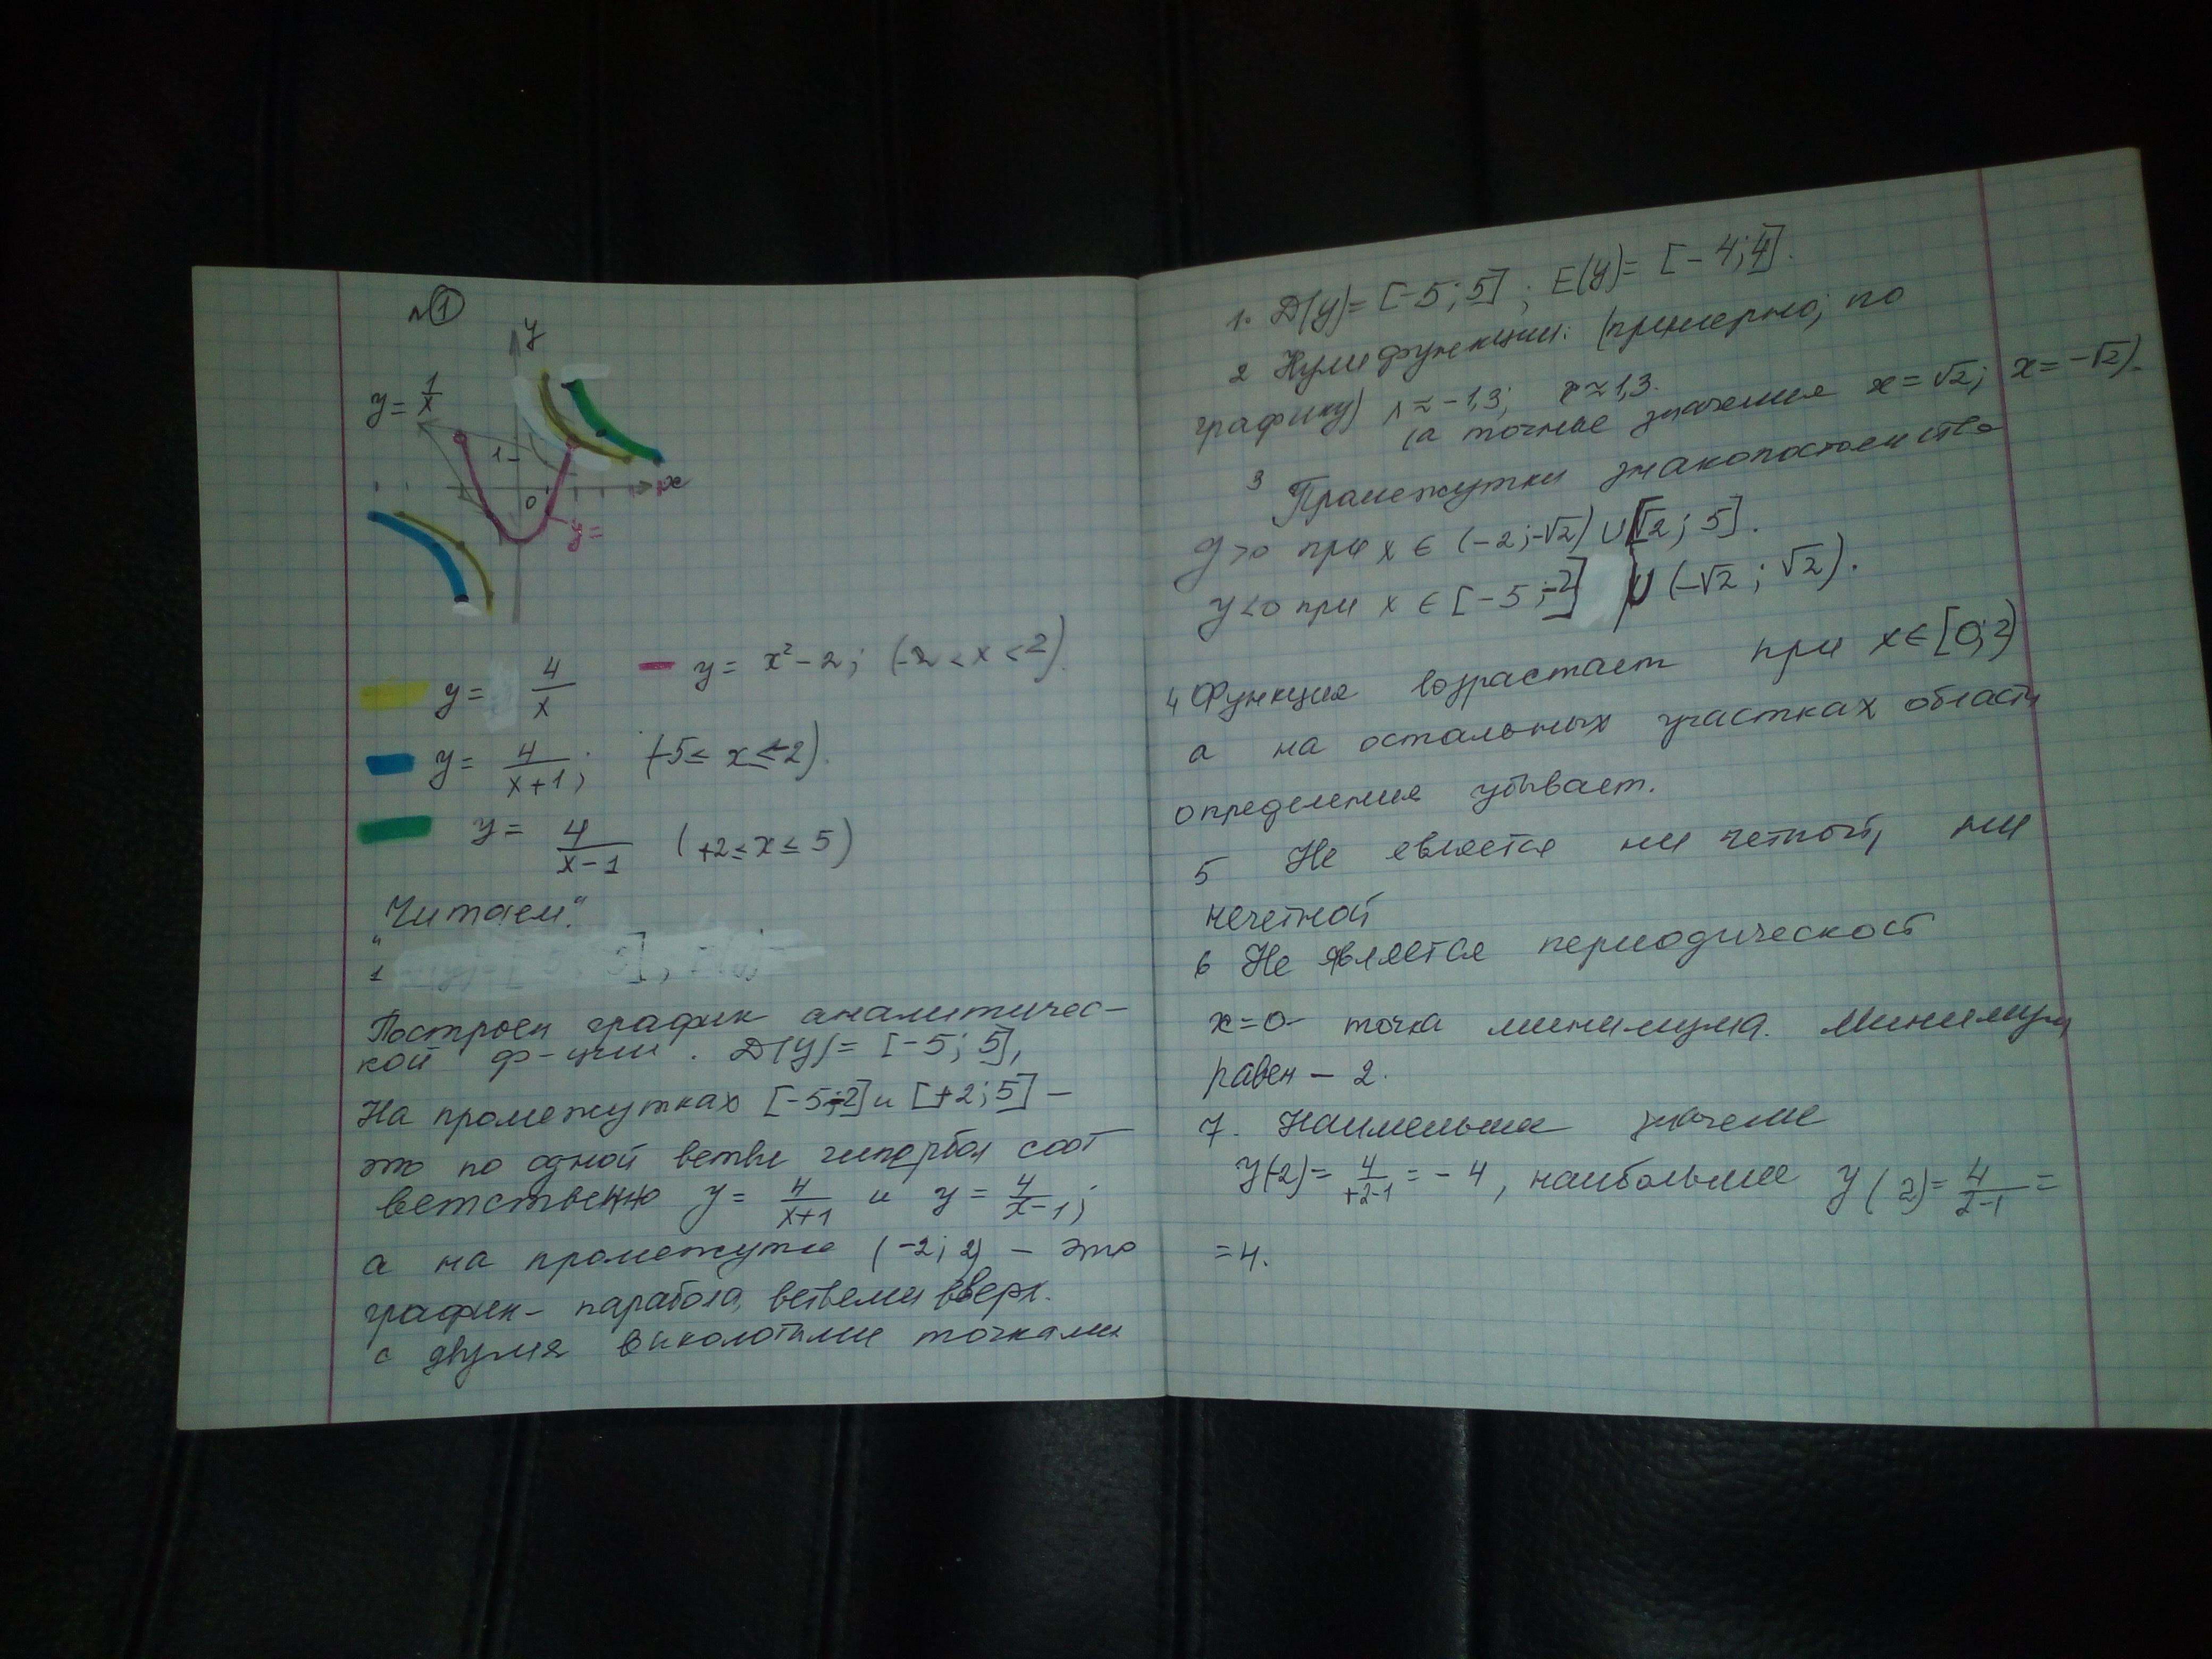 №1
y
y = 1/x
1
0
x
y =
y = 4/x
y = x² - 2; (-2 < x < 2).
y = 4/(x+1); (-5 ≤ x ≤ -2).
y = 4/(x-1) (+2 ≤ x ≤ 5)
"Читаем:"
1
Построен график аналитичес-
кой ф-ции. D(y) = [-5; 5],
На промежутках [-5;-2] и [+2; 5] –
это по одной ветви гипербол соот
ветственно y = 4/(x+1) и y = 4/(x-1);
а на промежутке (-2; 2) – это
график – парабола, ветвями вверх.
с двумя виколотыми точками
1. D(y) = [-5; 5]; E(y) = [-4; 4].
2 Нули функции: (примерно; по
графику) x ≈ -1,3; x ≈ 1,3.
(а точные значения x = √2; x = -√2).
3 Промежутки знакопостоянства
y > 0 при x ∈ (-2; -√2) ∪ [√2; 5].
y < 0 при x ∈ [-5; -2] ∪ (-√2; √2).
4 Функция возрастает при x ∈ [0; 2)
а на остальных участках области
определения убывает.
5 Не является ни четной, ни
нечетной
6 Не является периодическост
x = 0 – точка минимума. Минимум
равен – 2.
7. Наименьшее значение
y(-2) = 4/(+2-1) = -4, наибольшее y(2) = 4/(2-1) =
= 4.